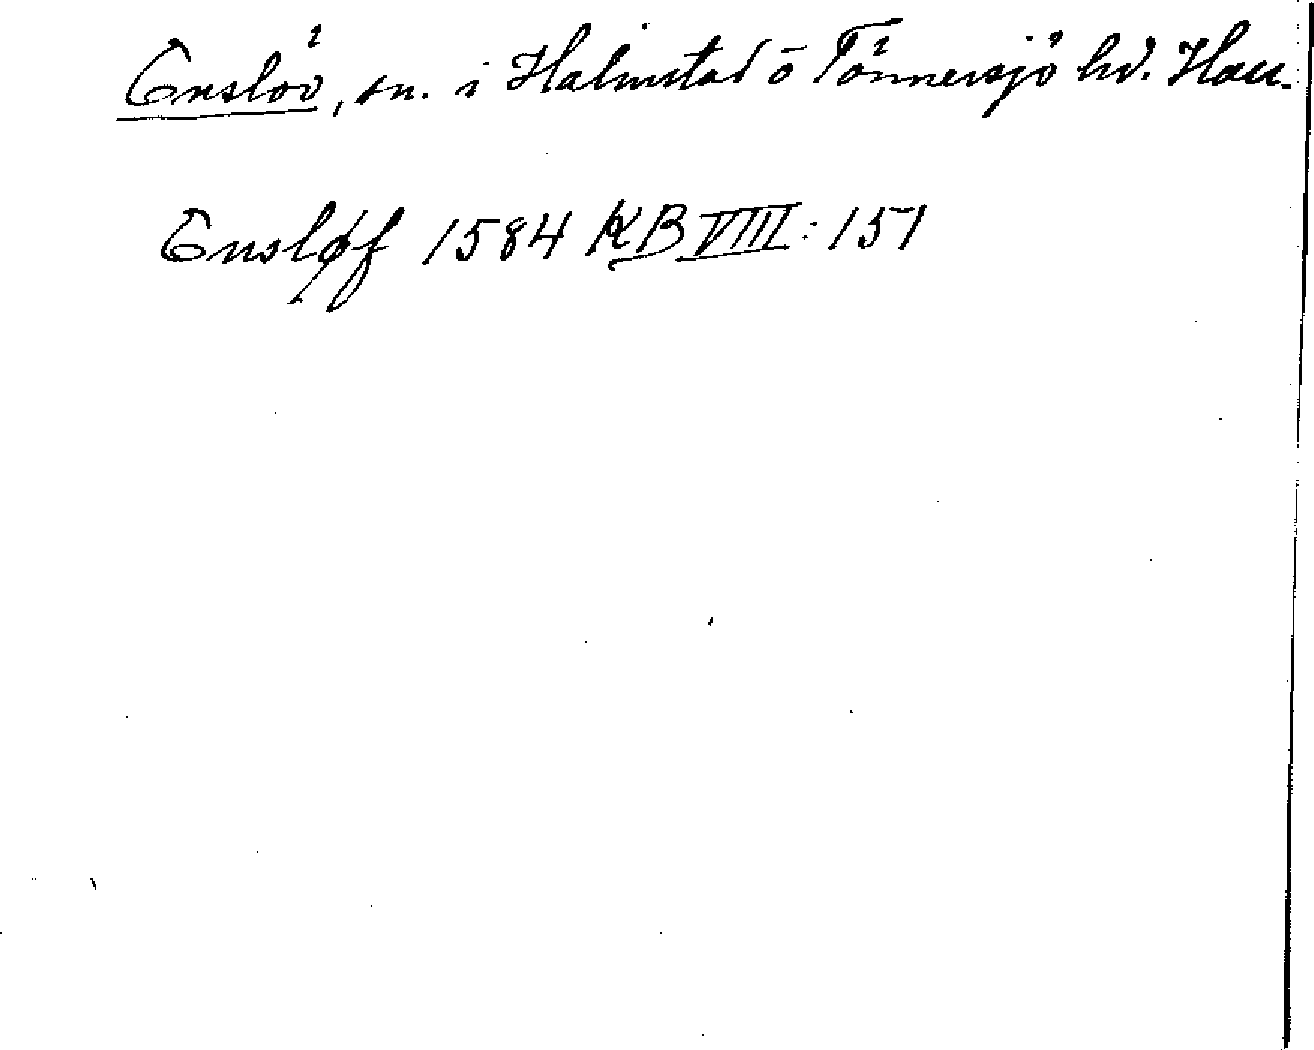 Enslöv, sn. i Halmstad o Tönnersjö hd. Hall.
Ensløf 1584 KB VIII: 151